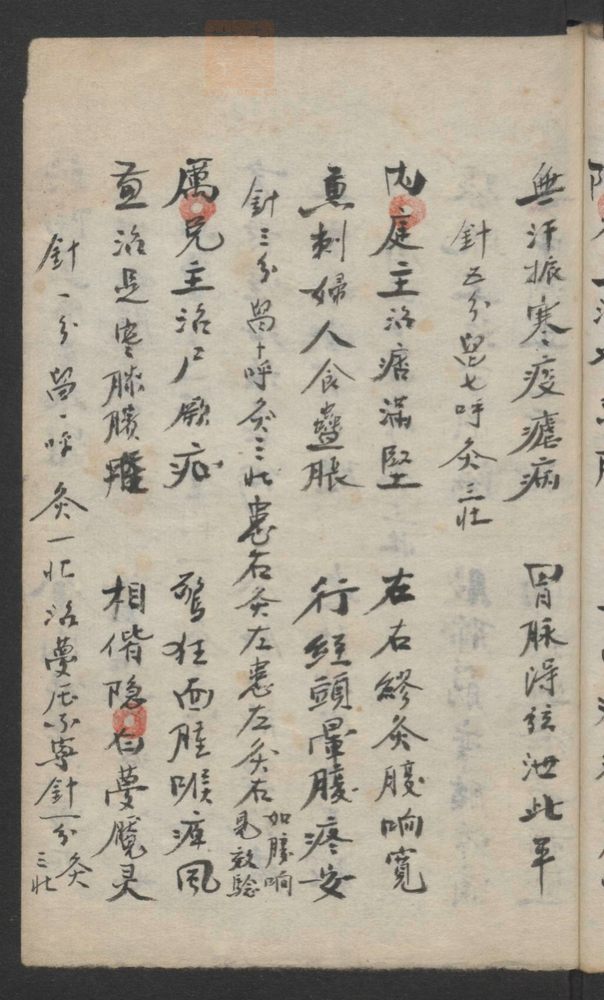 無汗振寒痎瘧病 胃脉浮弦泄此平
針五分留七呼灸三壮
内庭主治痞滿堅 左右繆灸腹响寬
兼刺婦人食蠱脹 行經頭暈腹疼安
針三分留十呼灸三壮患右灸左患左灸右
如腹响
見效驗
厲兑主治尸厥症 驚狂面腫喉痺風
兼治足寒膝臏腫 相偕隐白夢魘灵
針一分留一呼灸一壮治夢厌不寧針一分灸
三壮